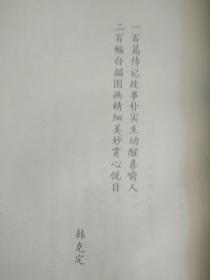 一百篇传记叙事朴实生动醒喜喻人
二百幅白描图画精细美妙赏心悦目
韩克定